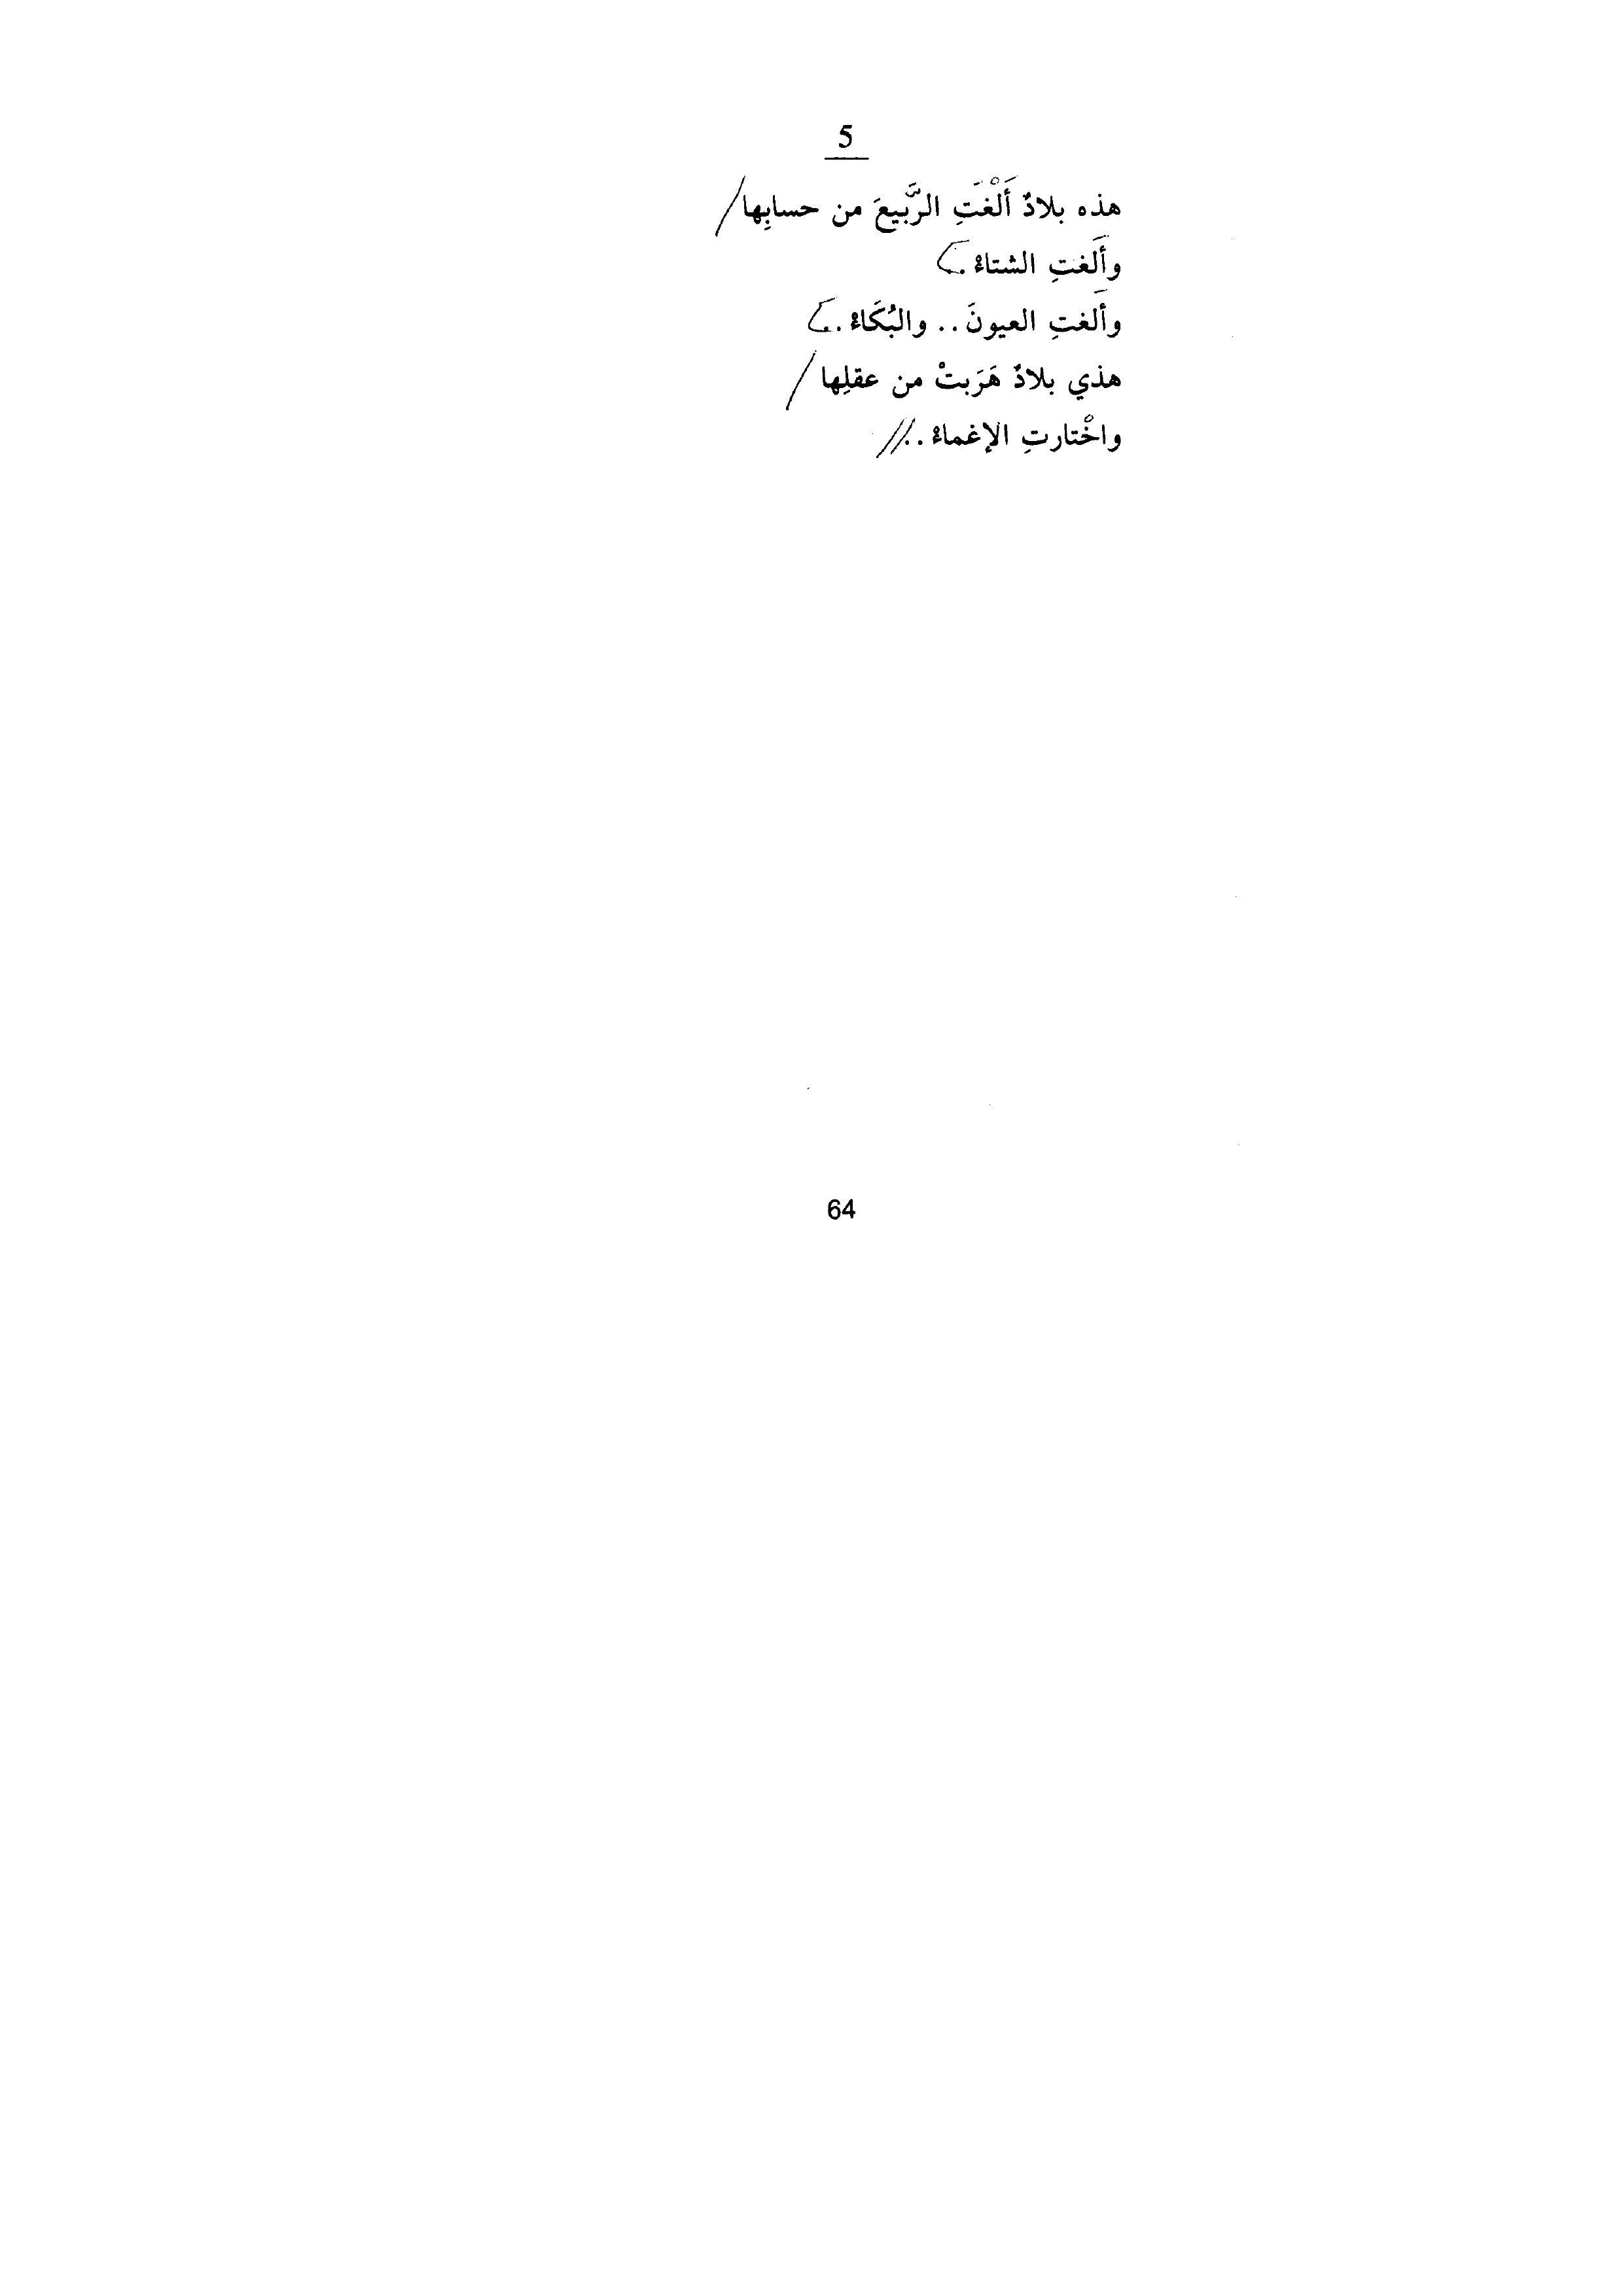 5
هذه بلادٌ أَلْغَتِ الرَّبيعَ من حسابِها
وأَلغتِ الشتاءْ..
وأَلغتِ العيونَ.. والبُكَاءْ..
هذي بلادٌ هَرَبتْ من عقلِها
واخْتارتِ الإغماءْ..
64